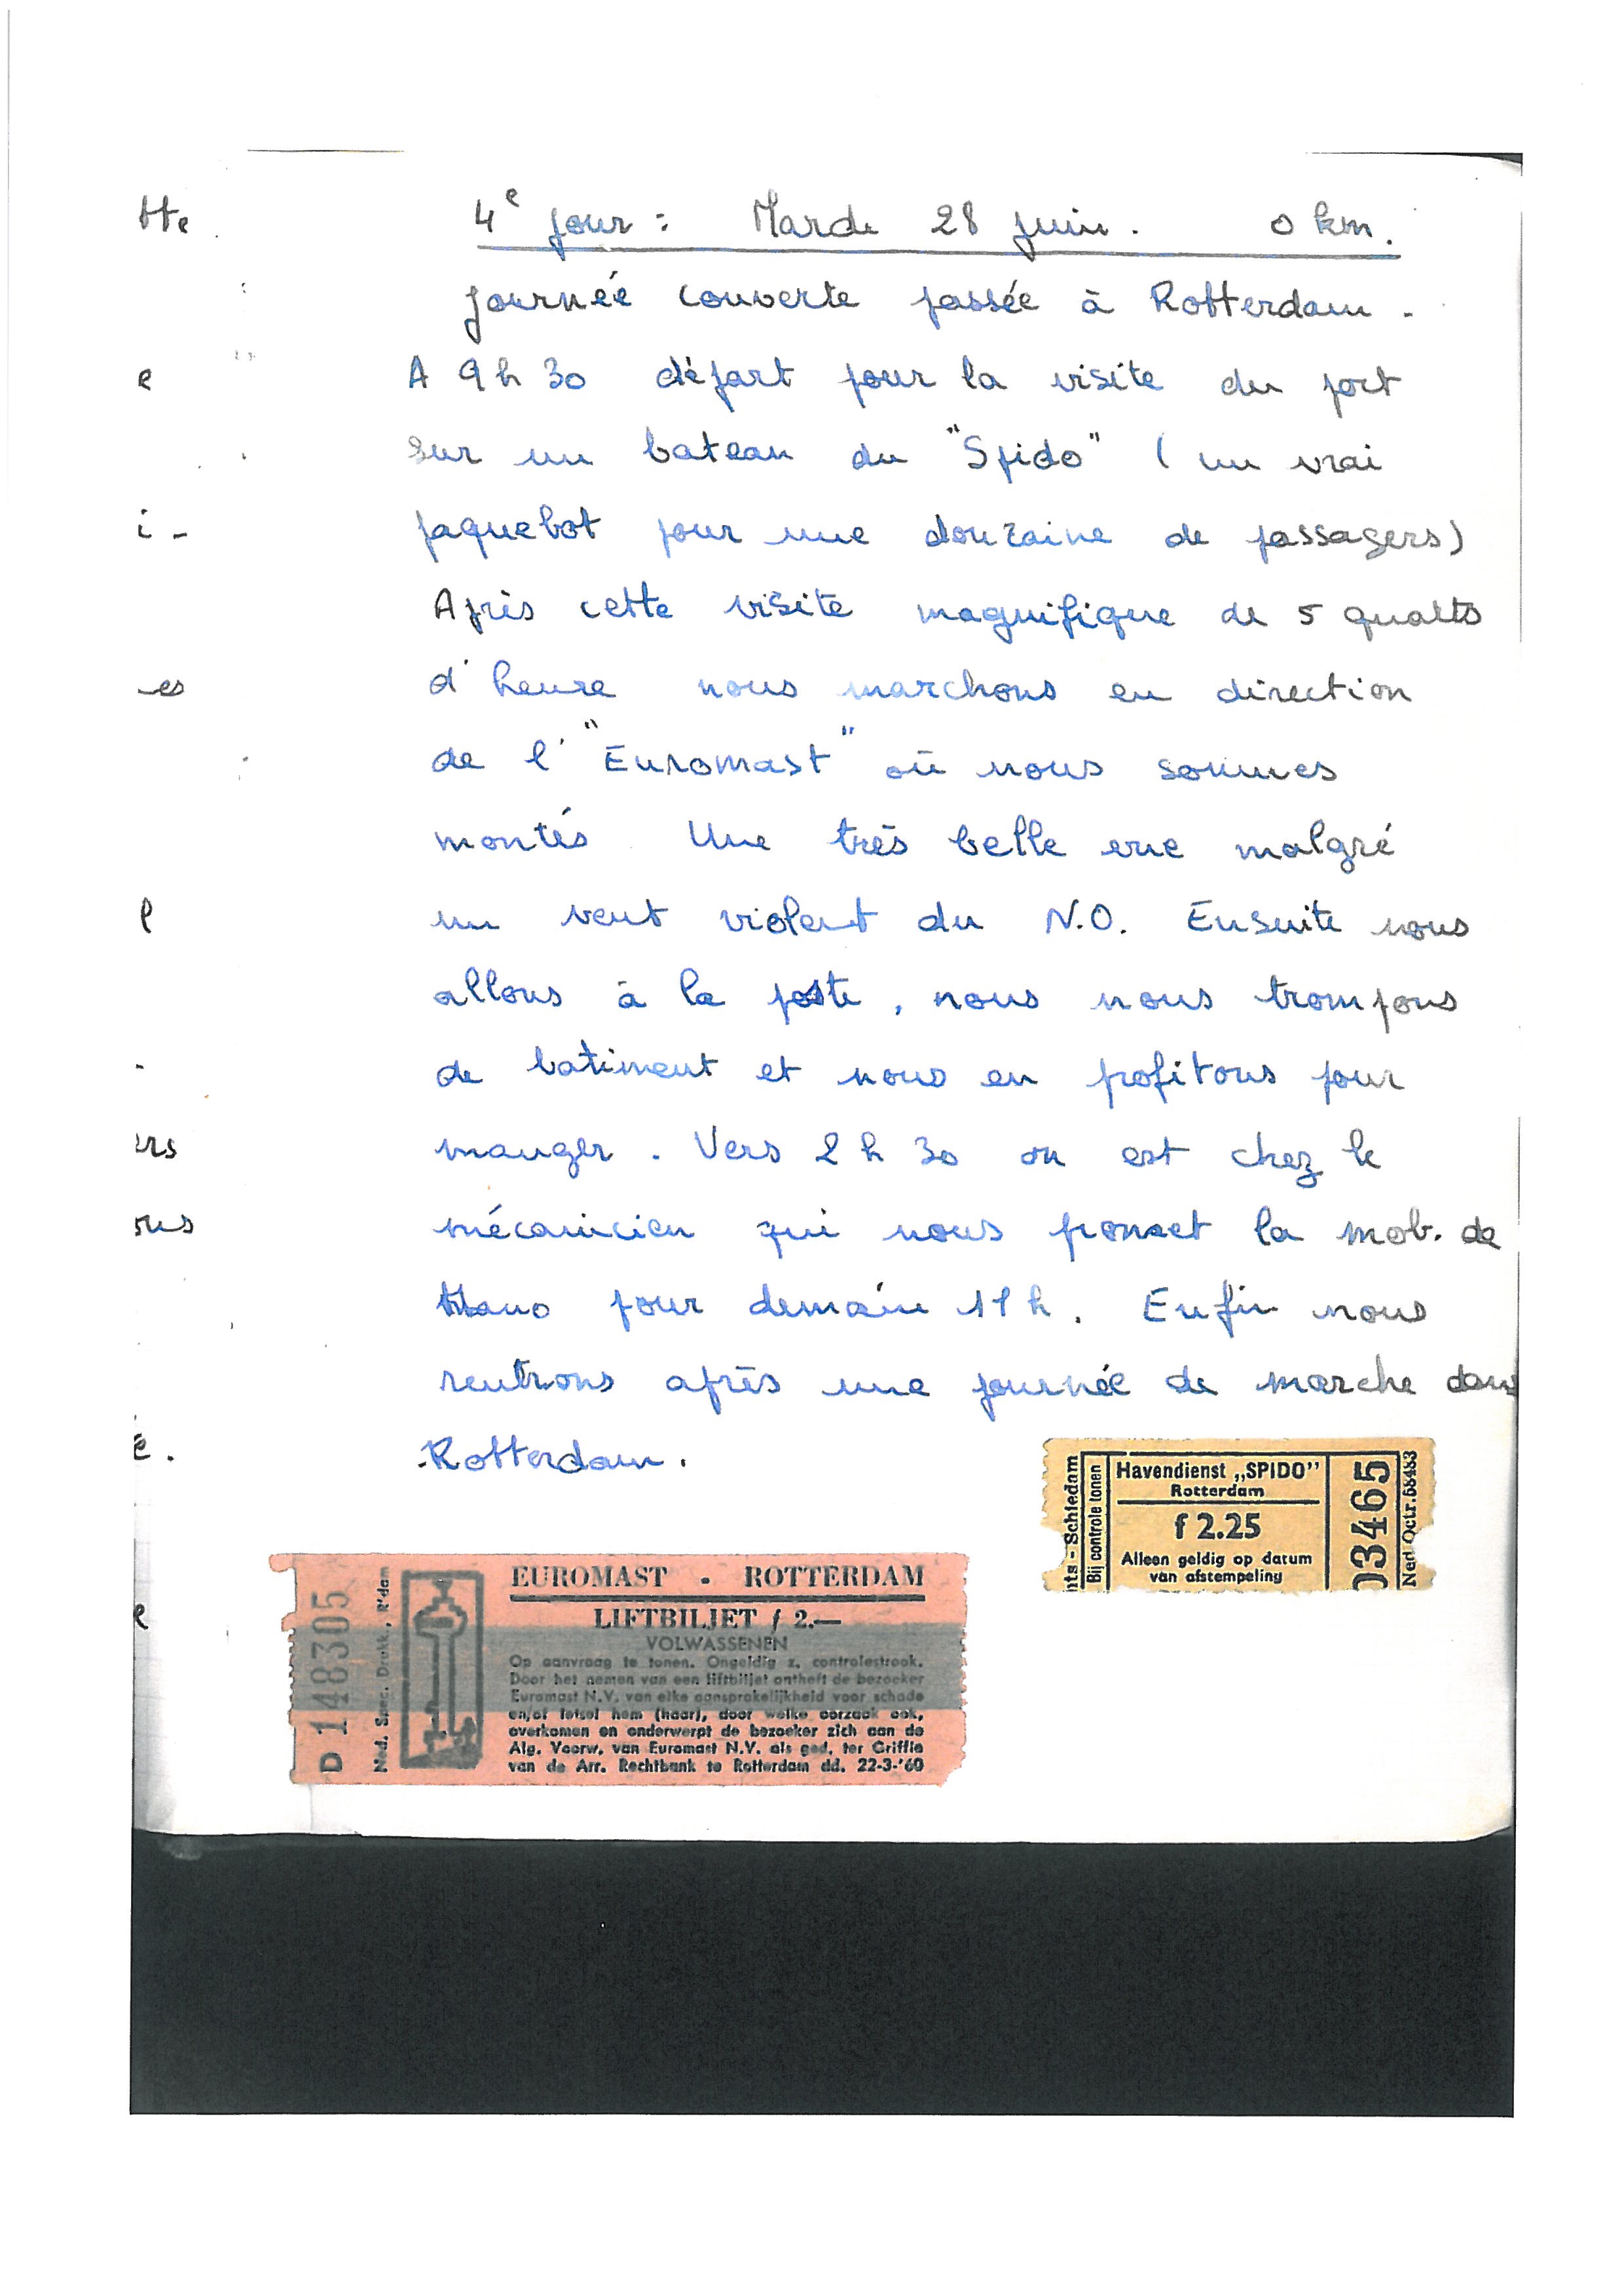 4e jour : Mardi 28 juin. 0 km.
journée couverte passée à Rotterdam.
A 9 h 30 départ pour la visite du port
sur un bateau du "Spido" (un vrai
paquebot pour une douzaine de passagers)
Après cette visite magnifique de 5 quarts
d'heure nous marchons en direction
de l'"Euromast" où nous sommes
montés Une très belle vue malgré
un vent violent du N.O. Ensuite nous
allons à la poste, nous nous trompons
de batiment et nous en profitons pour
manger. Vers 2 h 30 on est chez le
mécanicien qui nous promet la mob. de
pour demain 11 h. Enfin nous
rentrons après une journée de marche dans
Rotterdam.
hts - Schiedam
Bij controle tonen
Havendienst „SPIDO"
Rotterdam
f 2.25
Alleen geldig op datum
van afstempeling
03465
Ned Octr. 58483
D 148305
Ned. Spec. Drukk., R'dam
EUROMAST - ROTTERDAM
LIFTBILJET f 2.—
VOLWASSENEN
Op aanvraag te tonen. Ongeldig z. controlestrook.
Door het nemen van een liftbiljet ontheft de bezoeker
Euromast N.V. van elke aansprakelijkheid voor schade
en/of letsel hem (haar), door welke oorzaak ook,
overkomen en onderwerpt de bezoeker zich aan de
Alg. Voorw. van Euromast N.V. als ged. ter Griffie
van de Arr. Rechtbank te Rotterdam dd. 22-3-'60